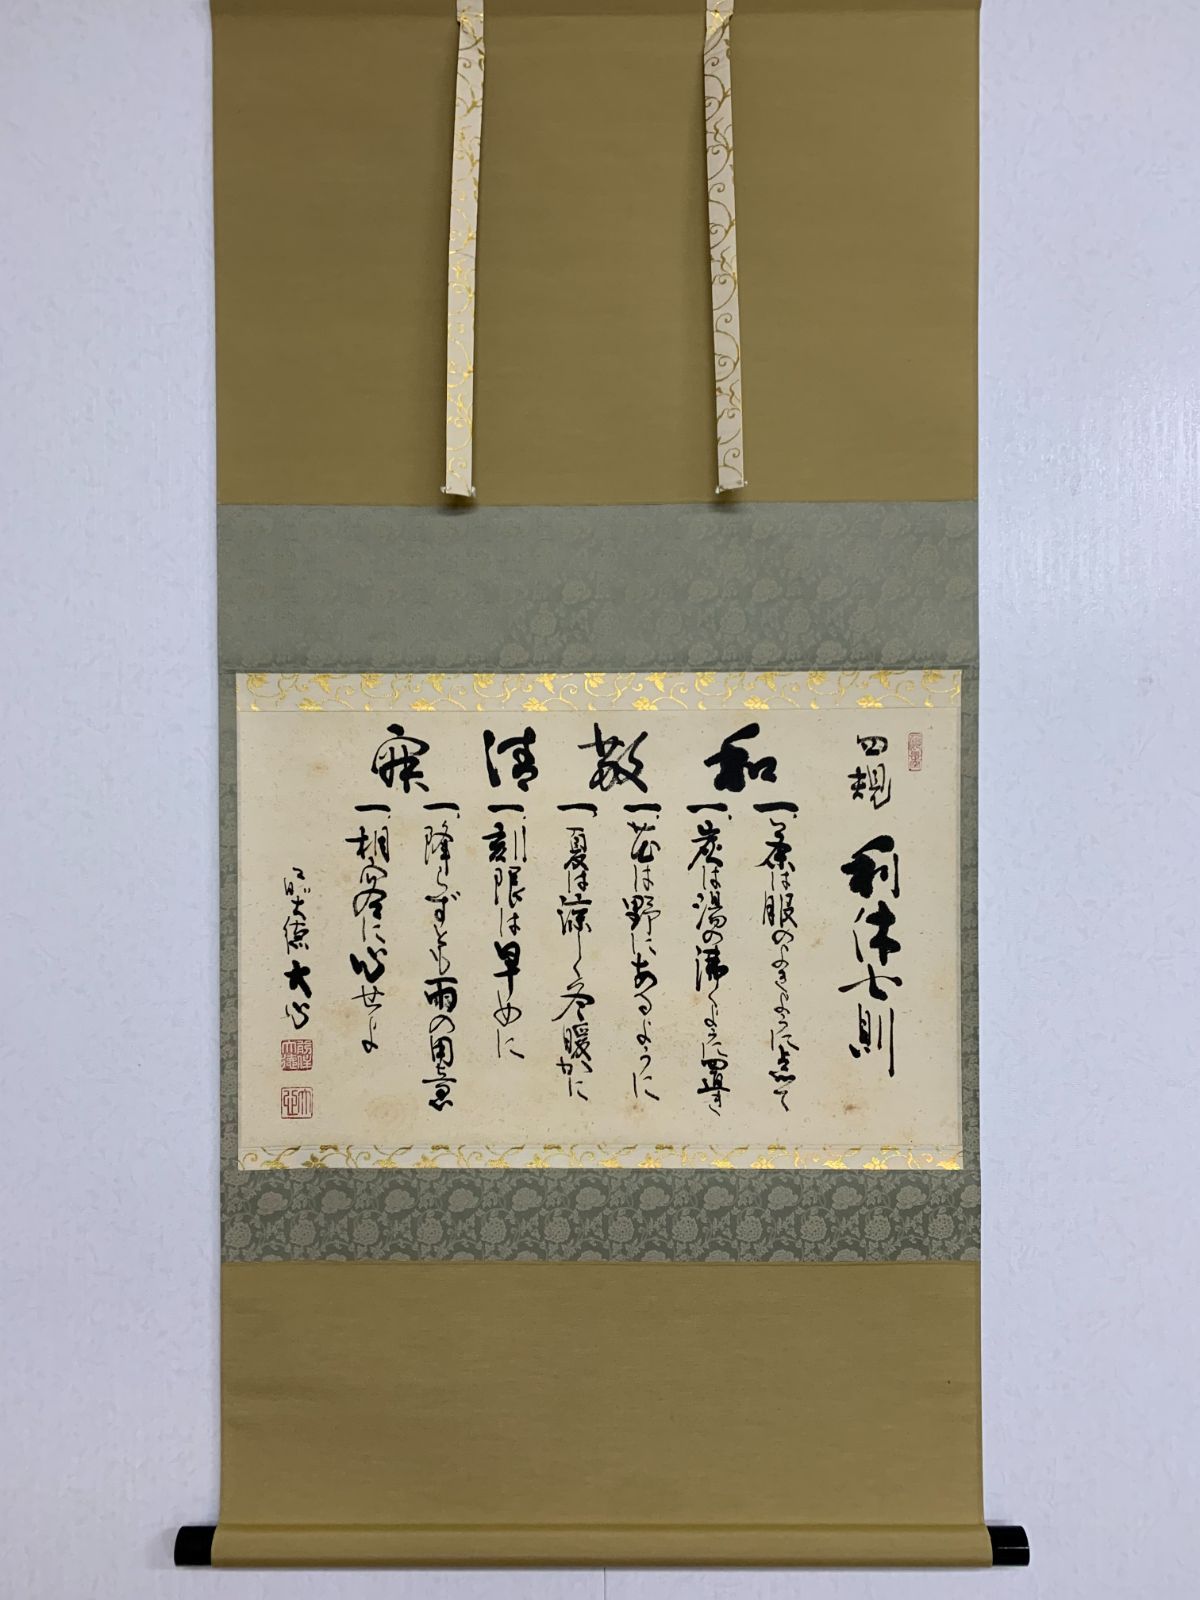 四規
利休七則
和敬清寂
一、茶は服のよきように点て
一、炭は湯の沸くように置き
一、花は野にあるように
一、夏は涼しく冬暖かに
一、刻限は早めに
一、降らずとも雨の用意
一、相客に心せよ